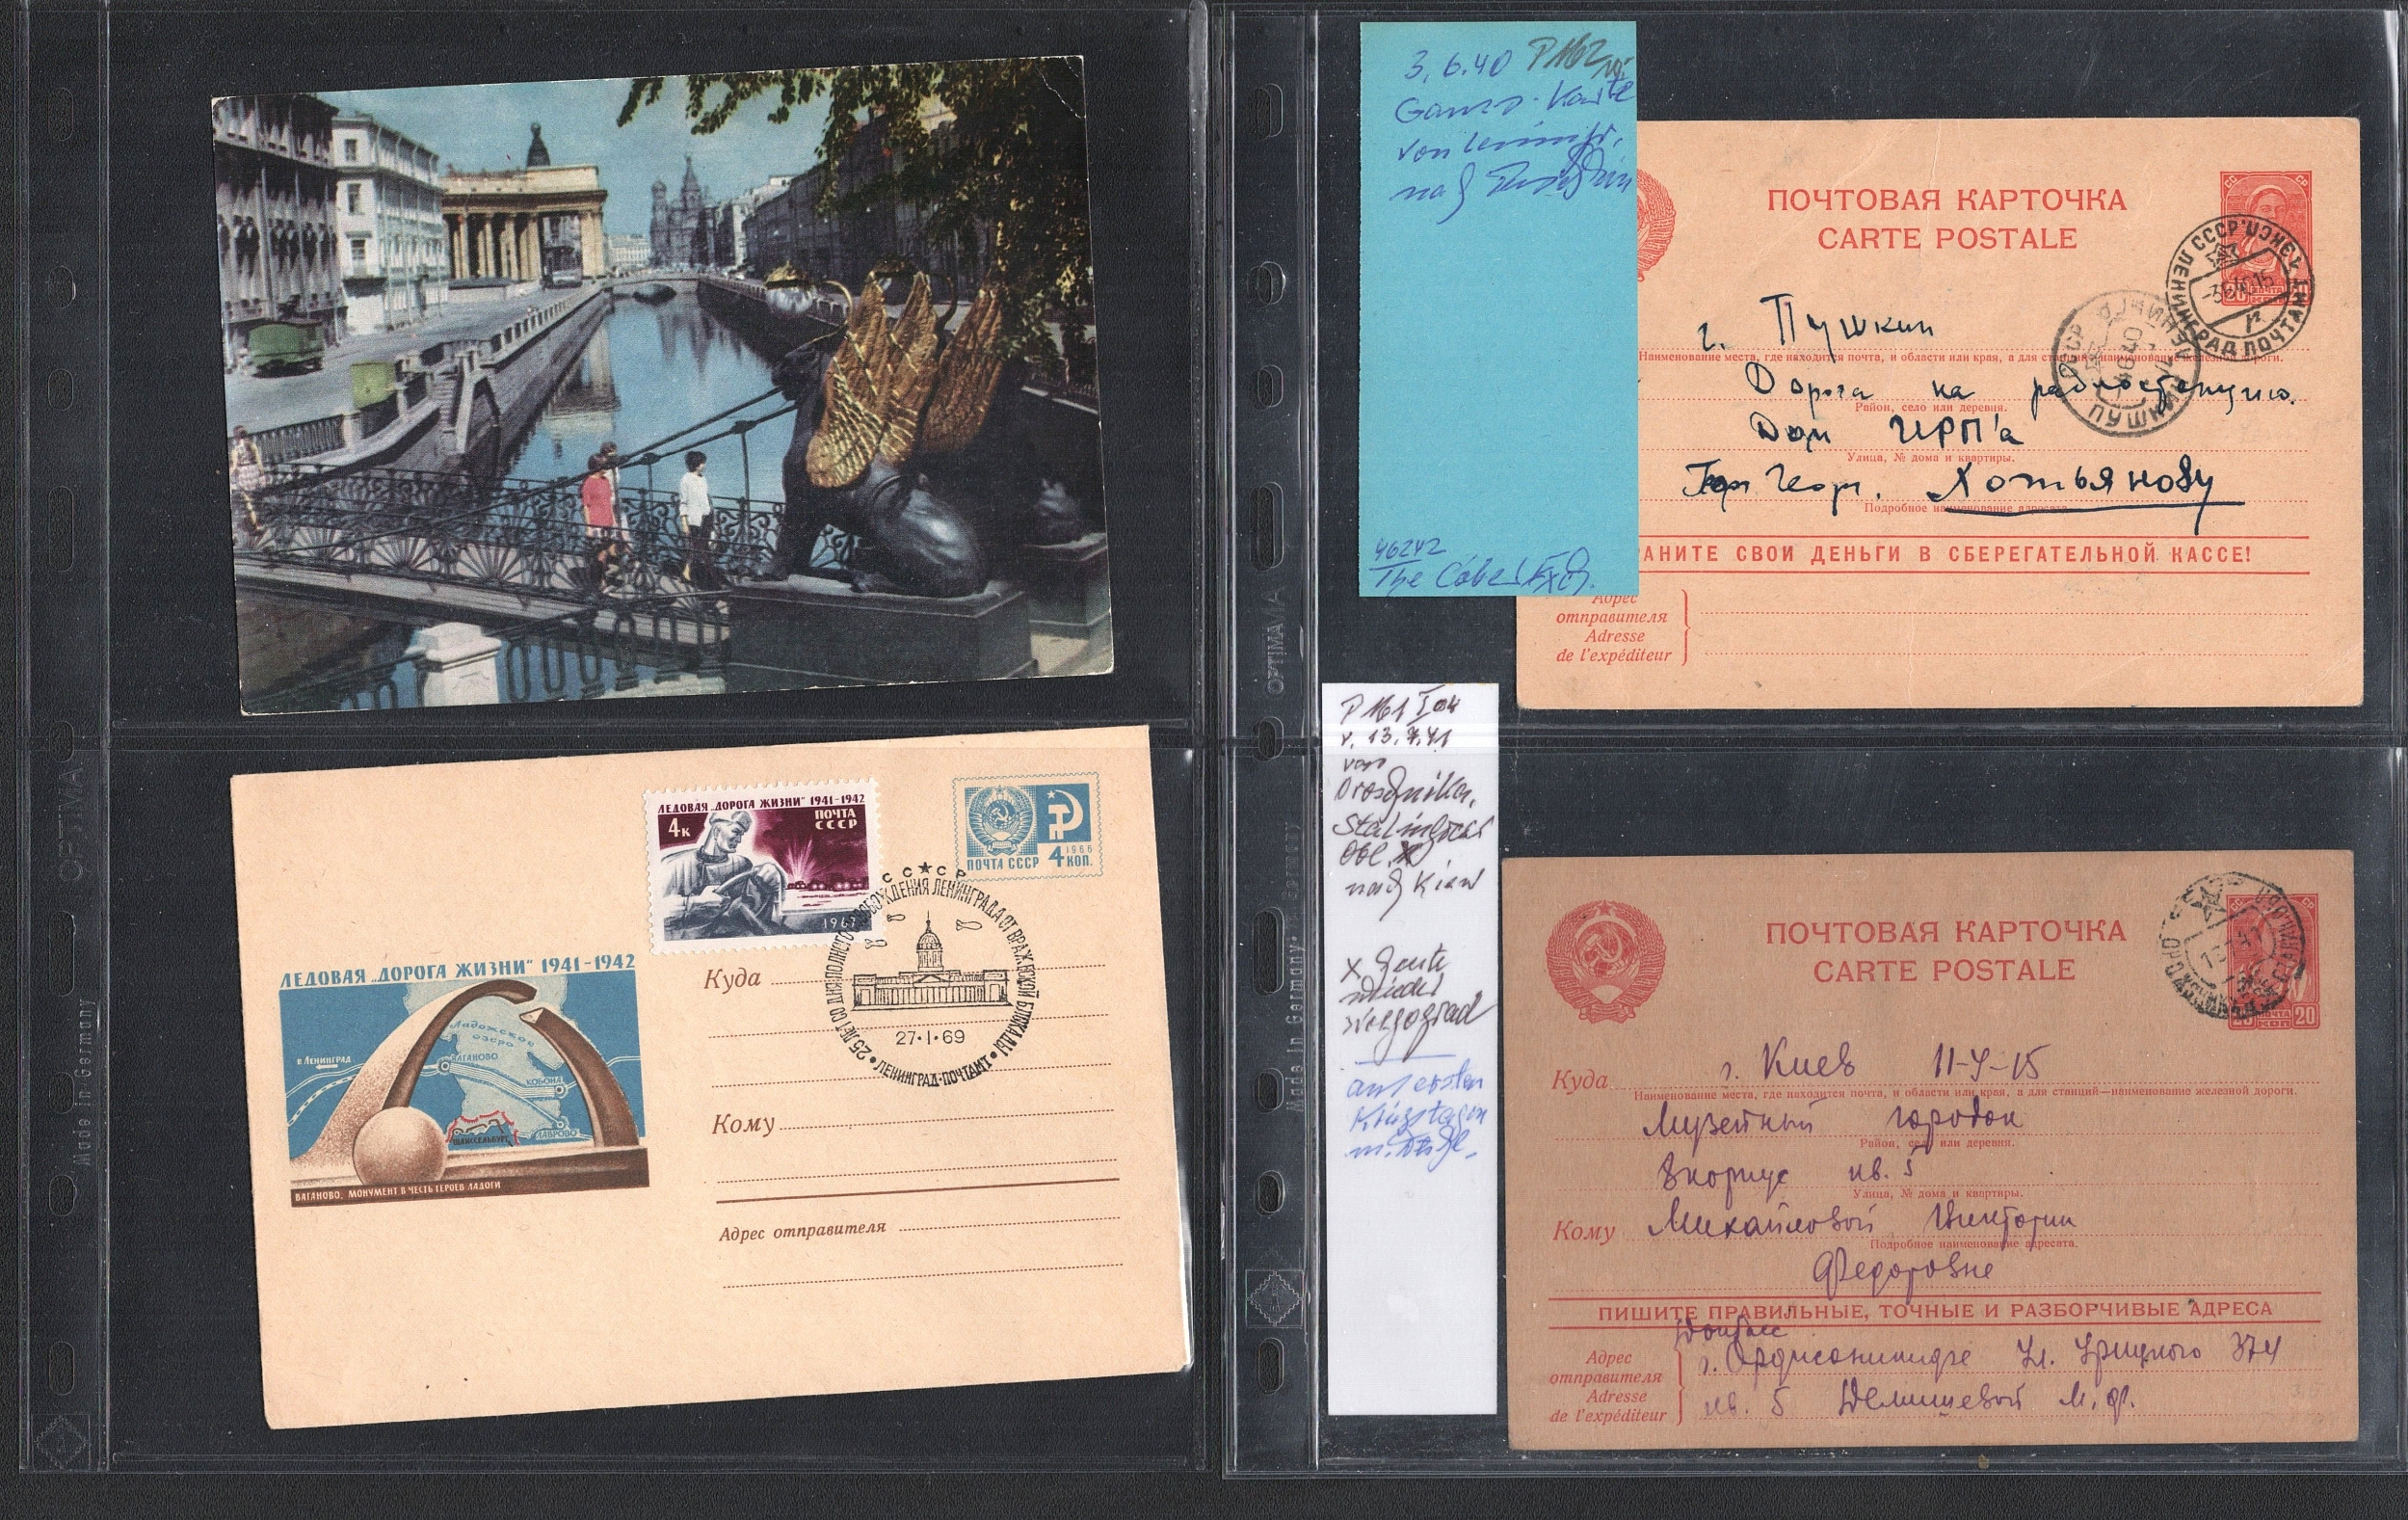 ЛЕДОВАЯ „ДОРОГА ЖИЗНИ" 1941-1942
4к
ПОЧТА
СССР
1967
ПОЧТА СССР 4 КОП.
1966
СС★СР
25 ЛЕТ СО ДНЯ ПОЛНОГО ОСВОБОЖДЕНИЯ ЛЕНИНГРАДА ОТ ВРАЖЕСКОЙ БЛОКАДЫ
27·I·69
ЛЕНИНГРАД·ПОЧТАМТ
ЛЕДОВАЯ „ДОРОГА ЖИЗНИ" 1941-1942
Ладожское
озеро
в Ленинград
ВАГАНОВО
КОБОНА
ШЛИССЕЛЬБУРГ
ЛАВРОВО
ВАГАНОВО. МОНУМЕНТ В ЧЕСТЬ ГЕРОЕВ ЛАДОГИ
Куда
Кому
Адрес отправителя
OPTIMA
Made in Germany
3.6.40 P 162
Ganzs.-Karte
von
nach
46242
The
ПОЧТОВАЯ КАРТОЧКА
CARTE POSTALE
СС СР
20 ПОЧТА КОП
ЛЕНИНГРАД ПОЧТАМТ
г. Пушкин
Наименование места, где находится почта, и области или края, а для станций—наименование железной дороги.
Дорога на радиостанцию.
Район, село или деревня.
Дом
Улица, № дома и квартиры.
Геор. Хотьянову
Подробное наименование адресата.
АНИТЕ СВОИ ДЕНЬГИ В СБЕРЕГАТЕЛЬНОЙ КАССЕ!
Адрес
отправителя
Adresse
de l'expéditeur
OPTIMA
Made in Germany
P 161 I 04
v. 13.7.41
von
Stalingrad
Obl.
nach Kiew
x heute
wieder
auf ersten
Kriegstagen
ПОЧТОВАЯ КАРТОЧКА
CARTE POSTALE
20 ПОЧТА КОП 20
Куда г. Киев 11-У-15
Наименование места, где находится почта, и области или края, а для станций—наименование железной дороги.
Музейный городок
Район, село или деревня.
8 корпус кв. 5
Улица, № дома и квартиры.
Кому Михайловой Виктории
Подробное наименование адресата.
Федоровне
ПИШИТЕ ПРАВИЛЬНЫЕ, ТОЧНЫЕ И РАЗБОРЧИВЫЕ АДРЕСА
Донбасс
г. Орджоникидзе ул. Урицкого 37
кв. 5 М. Ф.
Адрес
отправителя
Adresse
de l'expéditeur